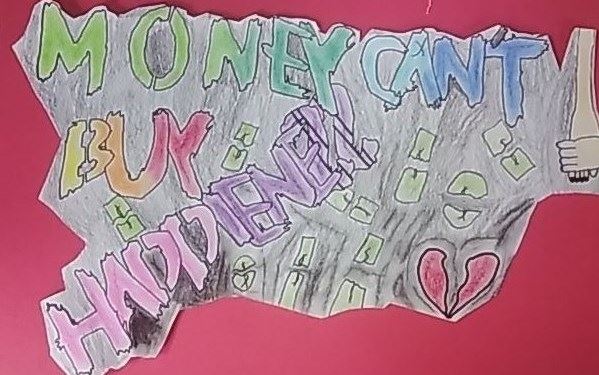 MONEY CAN'T
BUY
HAPPIENESS.